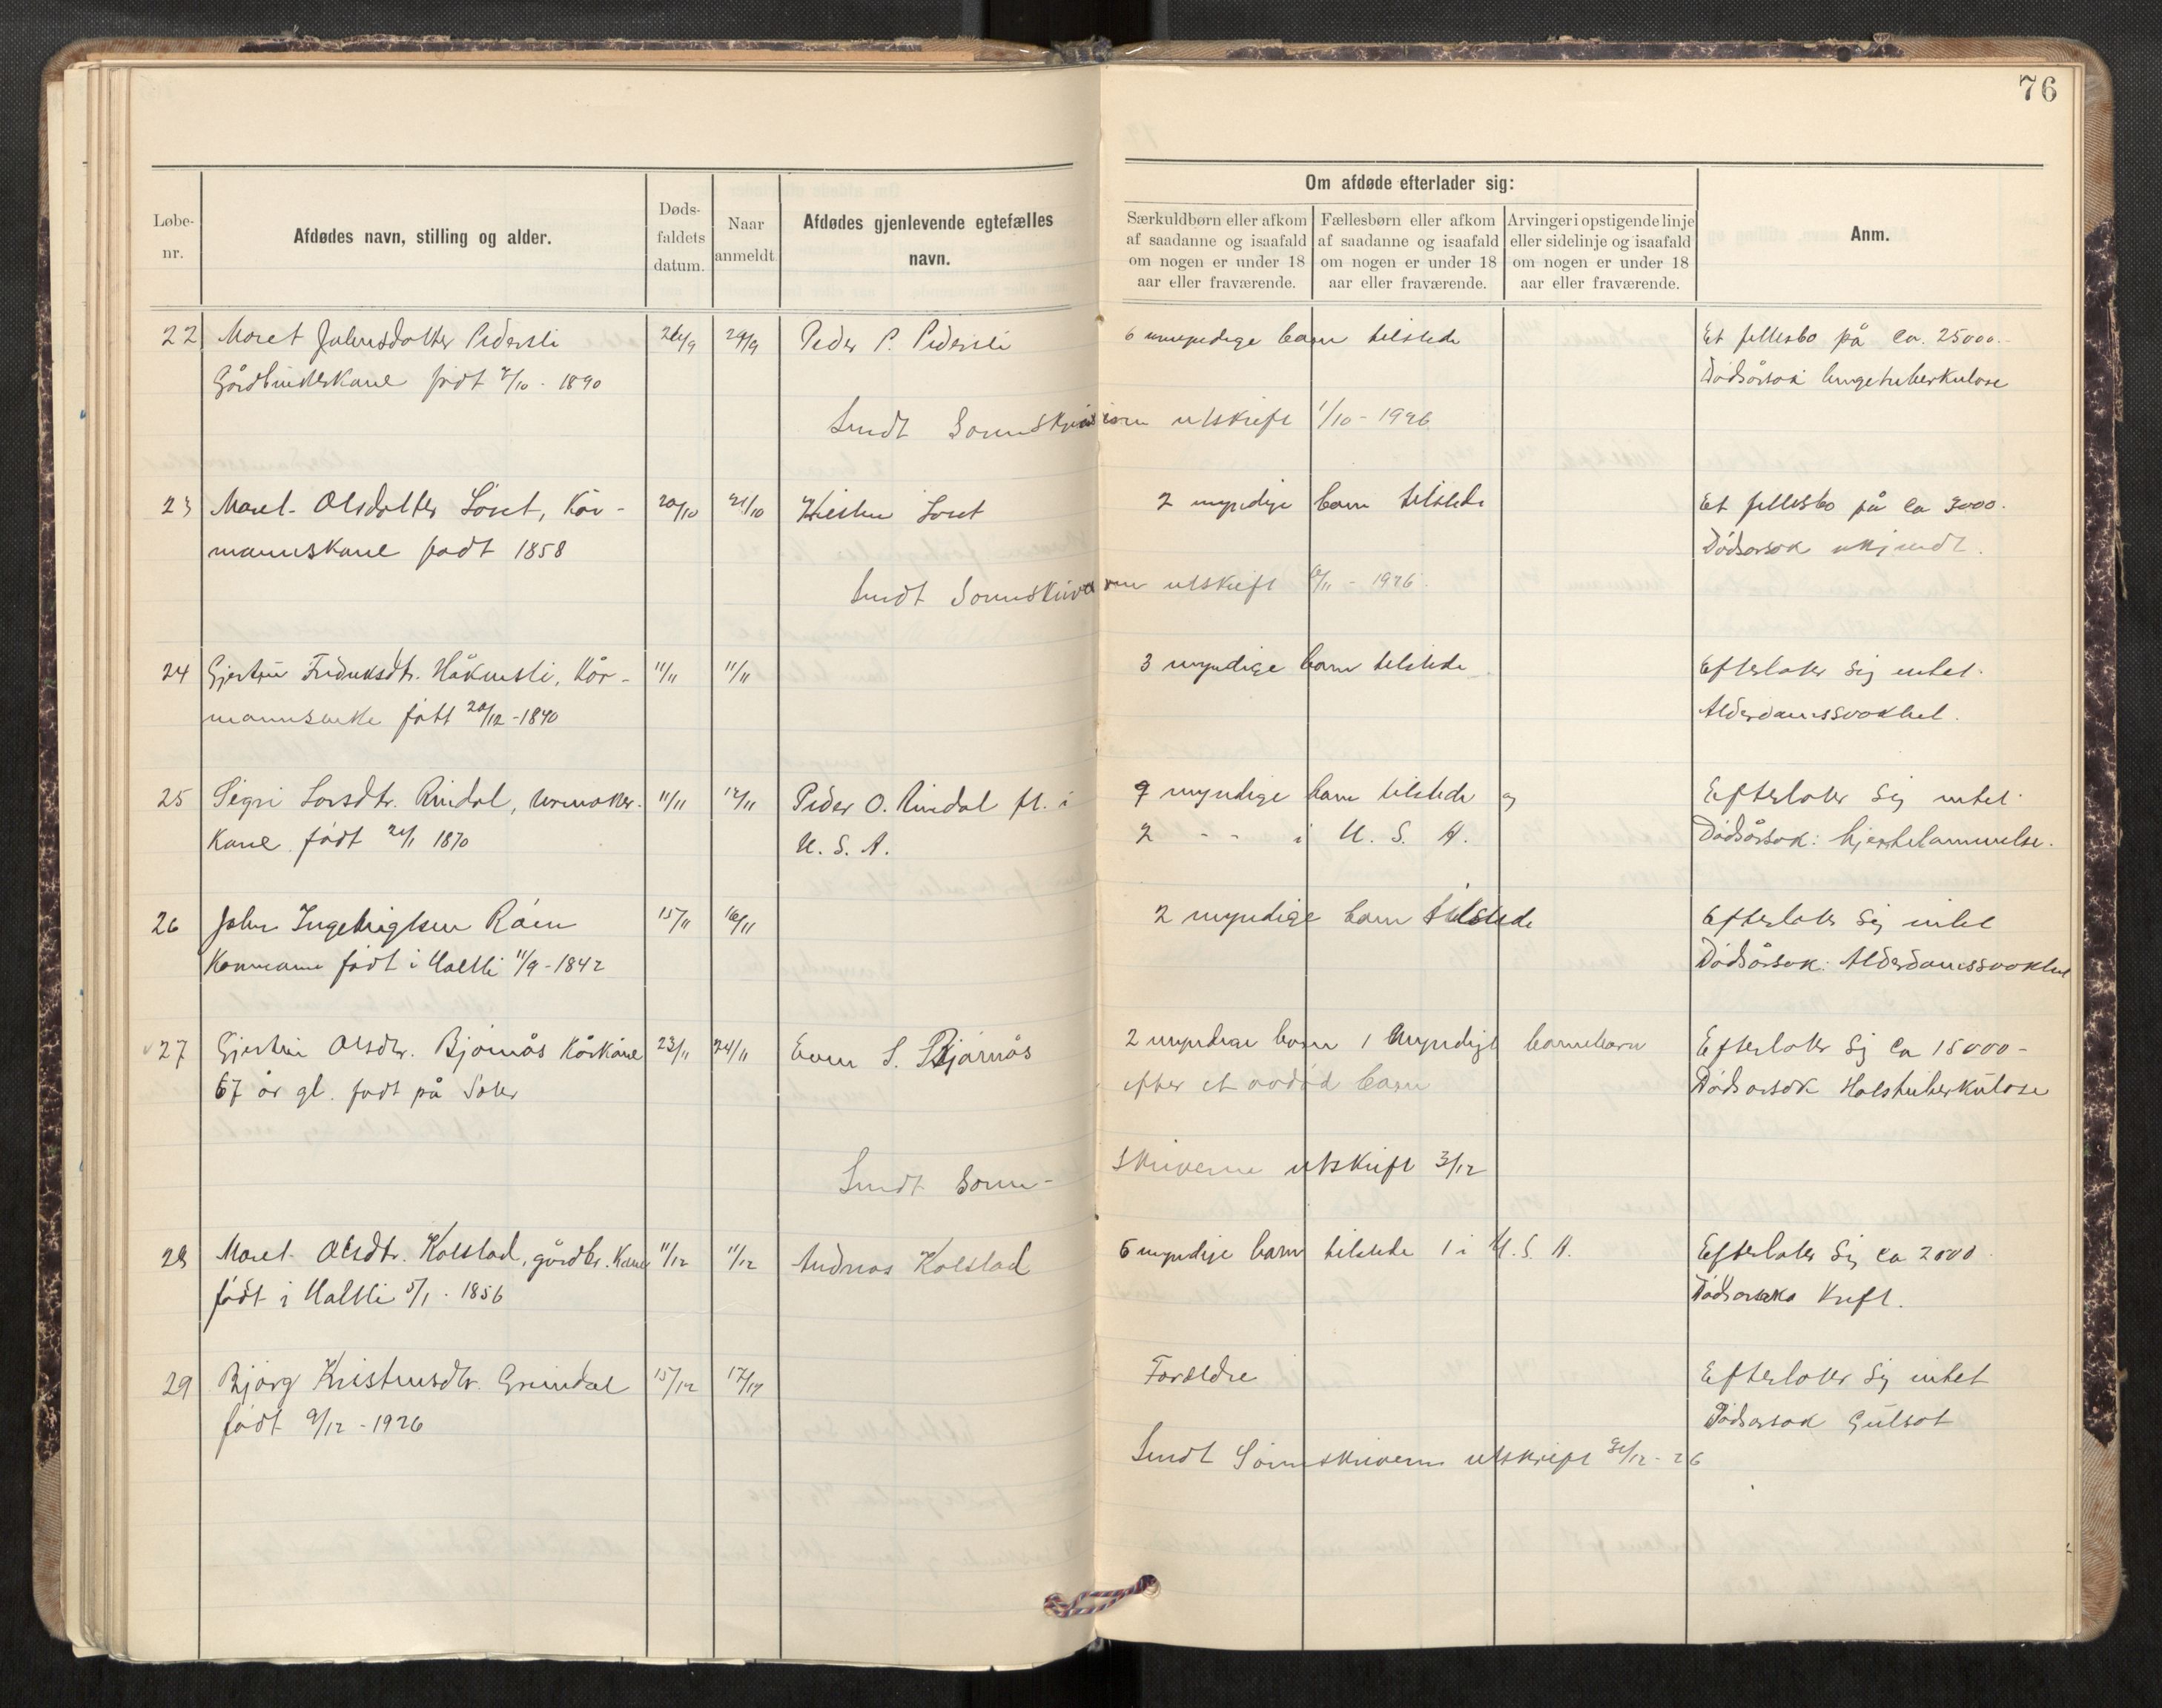 76
Løbe-
nr.
Afdødes navn, stilling og alder.
Døds-
faldets
datum.
Naar
anmeldt.
Afdødes gjenlevende egtefælles
navn.
Om afdøde efterlader sig:
Særkuldbørn eller afkom
af saadanne og isaafald
om nogen er under 18
aar eller fraværende.
Fællesbørn eller afkom
af saadanne og isaafald
om nogen er under 18
aar eller fraværende.
Arvinger i opstigende linje
eller sidelinje og isaafald
om nogen er under 18
aar eller fraværende.
Anm.
22 Maret Johnsdotter Pedersli 29/9 Peder P. Pedersli 6 umyndige barn tilstede Et fellesbo på ca. 25000.-
Gårdbrukerkone født /10 - 1890 Dødsårsak lungetuberkulose
Sendt Sorenskriveren utskrift 1/10 - 1926
23 Maret Olsdotter Løset, Kår- 20/10 21/10 Løset 2 myndige barn tilstede Et fellesbo på ca 3000.
mannskone født 1858 Dødsorsok ukjendt.
Sendt Sorenskriveren utskrift /11 - 1926.
24 Gjertru Fredriksdtr. Håkensli, Kår- 11/11 11/11 3 myndige barn tilstede Efterlater sig intet.
mannsenke født 20/12 - 1840 Alderdomssvakhet.
25 Sigri Larsdtr. Rindal, urmaker- 11/11 12/11 Peder O. Rindal f. t. i 9 myndige barn tilstede og Efterlater sig intet.
kone født 24/1 1870 U. S. A. 2 - - i U. S. A. Dødsårsak: hjertelammelse.
26 John Ingebrigtsen Røen 15/11 16/11 2 myndige barn tilstede Efterlater sig intet
Kårmann født i Halsli 11/9 - 1842 Dødsårsak: Alderdomssvakhet
27 Gjertru Olsdtr. Bjørnås Kårkone 23/11 24/11 Even S. Bjørnås 2 myndige barn 1 Myndigt barnebarn Efterlater sig ca 15000-
67 år gl. født på Soler efter et avdød barn Dødsorsok Halstuberkulose
Sendt Soren- skriveren utskrift 3/12
28 Maret Olsdtr. Kolstad, gårdbr. Kone 11/12 11/12 Andreas Kolstad 6 myndige barn tilstede 1 i U. S. A. Efterlater sig ca 2000.
født i Halsli 5/1 - 1856 Dødsorsok Kreft.
29 Bjørg Kristensdtr. Grindal 15/12 17/12 Foreldre Efterlater sig intet
født 9/12 - 1926 Dødsorsok Gulsot
Sendt Sorenskriveren utskrift 31/12 - 26